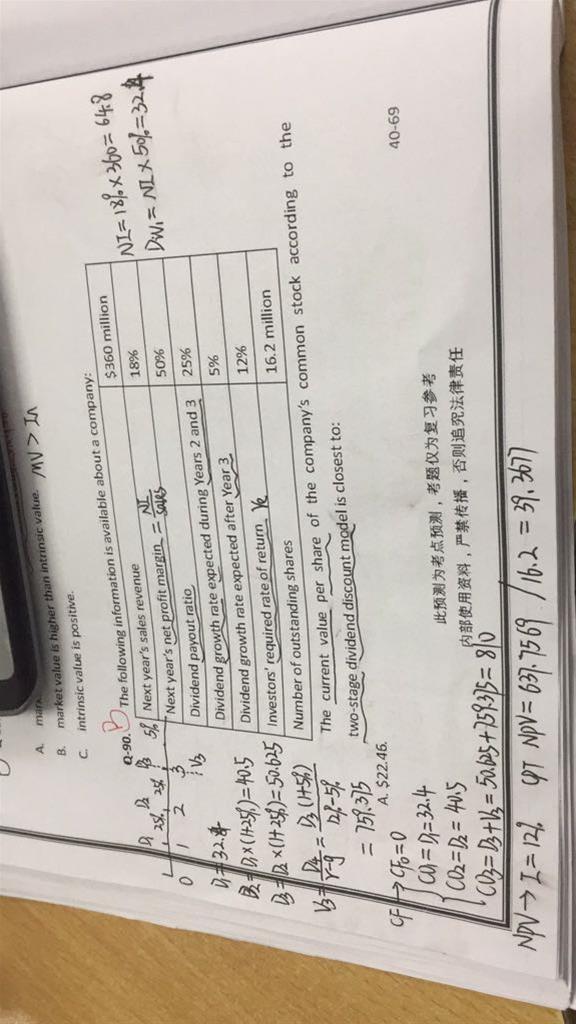 A. mar
B. market value is higher than intrinsic value. MV > In
C. intrinsic value is positive.
Q-90. B The following information is available about a company:
Next year's sales revenue $360 million
Next year's net profit margin = NI/sales 18%
Dividend payout ratio 50%
Dividend growth rate expected during Years 2 and 3 25%
Dividend growth rate expected after Year 3 5%
Investors' required rate of return re 12%
Number of outstanding shares 16.2 million
NI = 18% × 360 = 64.8
Div1 = NI × 50% = 32.4
The current value per share of the company's common stock according to the
two-stage dividend discount model is closest to:
A. $22.46.
40-69
D1 D2 D3 5%
25% 25%
0 1 2 3
V3
D1 = 32.4
D2 = D1 × (1+25%) = 40.5
D3 = D2 × (1+25%) = 50.625
V3 = D4/r-g = D3 (1+5%)/12%-5%
= 759.375
CF → CF0 = 0
C01 = D1 = 32.4
C02 = D2 = 40.5
C03 = D3 + V3 = 50.625 + 759.375 = 810
此预测为考点预测，考题仅为复习参考
内部使用资料，严禁传播，否则追究法律责任
NPV → I = 12% CPT NPV = 637.7569 /16.2 = 39.3677